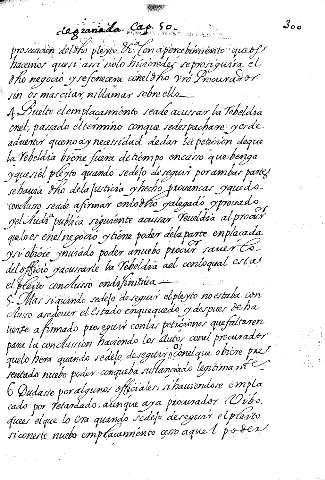 de granada Cap. 50. 300
prosecucion del dho pleyto
hacemos que si assi no lo hicieredes se proseguira el
dho negocio y se fenecera con el dho vro Procurador
sin os mas citar, ni llamar sobre ello
4. Buelto el emplacamiento se a de acussar la Rebeldia
en el, passado el termino con que se despachare, y es de
advertir que no ay necesidad de dar la peticion de que
la Rebeldia viene fuera de tiempo en casso que benga
y que si el pleyto quando se dejo de seguir por ambas partes
estava de la Justicia y hecho provancas y que de
concluso se a de afirmar en lo dho y alegado, y provado
y publica siguiente acussar Reveldia al procur
que lo es en el negocio y tiene poder de la parte emplacada
y si viniere, y nuevo poder a nuebo procur
del officio y acusarle la Rebeldia a el con lo qual estas
el pleyto conclusso en difinitiva
5. Mas si quando se dejo de seguir el pleyto no estaba con
cluso, a se de ver el estado en que quedo, y despues de ha
verse afirmado, proseguir con las peticiones que faltaren
para la conclusion haciendo los Autos con el procurador
que lo hera quando se dejo de seguir, o con el que obiere pre
sentado nuebo poder con que ba sustanciado legitimam.te
6. Dudasse por algunos officiales si haviendose empla
cado por retardado, aunque aya procurador Vibo,
que es el que lo era quando se dejo de seguir el pleyto
si con este nuebo emplacamiento ceso aquel poder